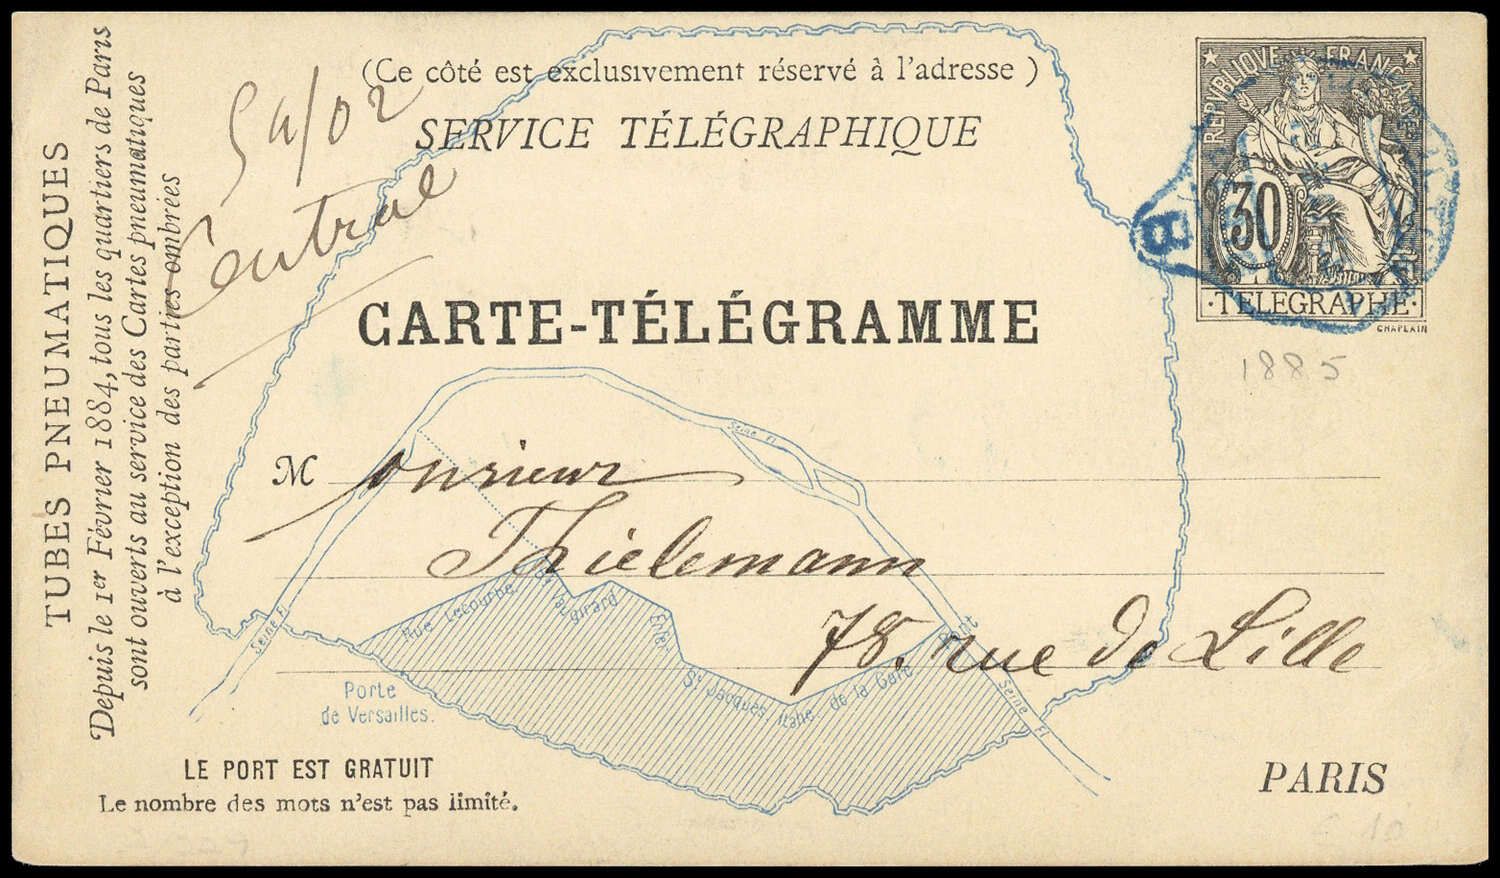 TUBES PNEUMATIQUES
Depuis le 1er Février 1884, tous les quartiers de Paris
sont ouverts au service des Cartes pneumatiques
à l'exception des parties ombrées
(Ce côté est exclusivement réservé à l'adresse)
SERVICE TÉLÉGRAPHIQUE
CARTE-TÉLÉGRAMME
Central
REPVBLIQVE FRANÇAISE
30
TELEGRAPHE
CHAPLAIN
1885
Seine Fl
Monsieur
Thielemann
78, rue de Lille
Rue Lecourbe
Vaugirard
Enfer
St Jacques, Italie, de la Gare
Seine Fl
Seine Fl
Porte
de Versailles.
LE PORT EST GRATUIT
Le nombre des mots n'est pas limité.
PARIS